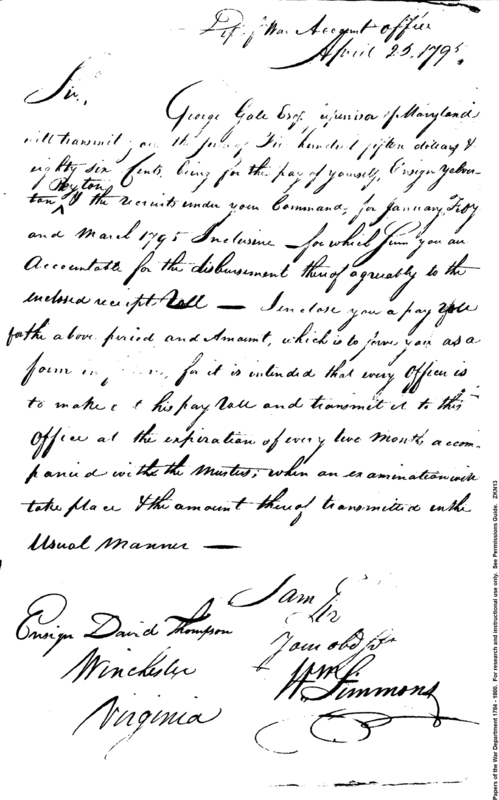 Dep. of War Accompt office
April 25. 1795.
Sir,
George Gale Esqr. Supervisor of Maryland
will transmit you the sum of Six hundred fifteen dollars &
eighty six Cents, being for the pay of yourself, Ensign Yelver-
Peyton
ton & the recruits under your Command, for January, Feby
and March 1795 Inclusive — for which Sum you are
Accountable for the disbursement thereof agreeably to the
enclosed receipt Roll — I enclose you a pay Roll
for the above period and Amount, which is to serve you as a
form in , for it is intended that every Officer is
to make out his pay Roll and transmit it to this
Office at the expiration of every two Months accom-
panied with the the Musters; when an examination will
take place & the amount thereof transmitted in the
Usual Manner —
I am
Sir
Your obd Sert
Wm Simmons
Ensign David Thompson
Winchester
Virginia
Papers of the War Department 1784 - 1800. For research and instructional use only. See Permissions Guide. ZKN13